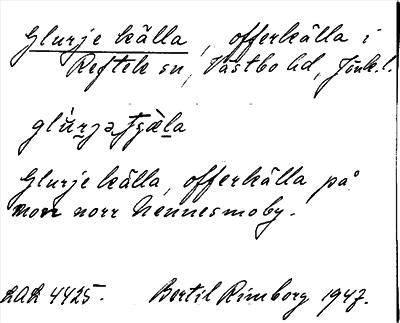 Glurje källa, offerkälla i
Reftele sn, Västbo hd, Jönk.l.
glu̇rjə ʈʂæ̀la
Glurje källa, offerkälla på
norr Nennesmoby.
LAL 4425. Bertil Rimborg 1947.